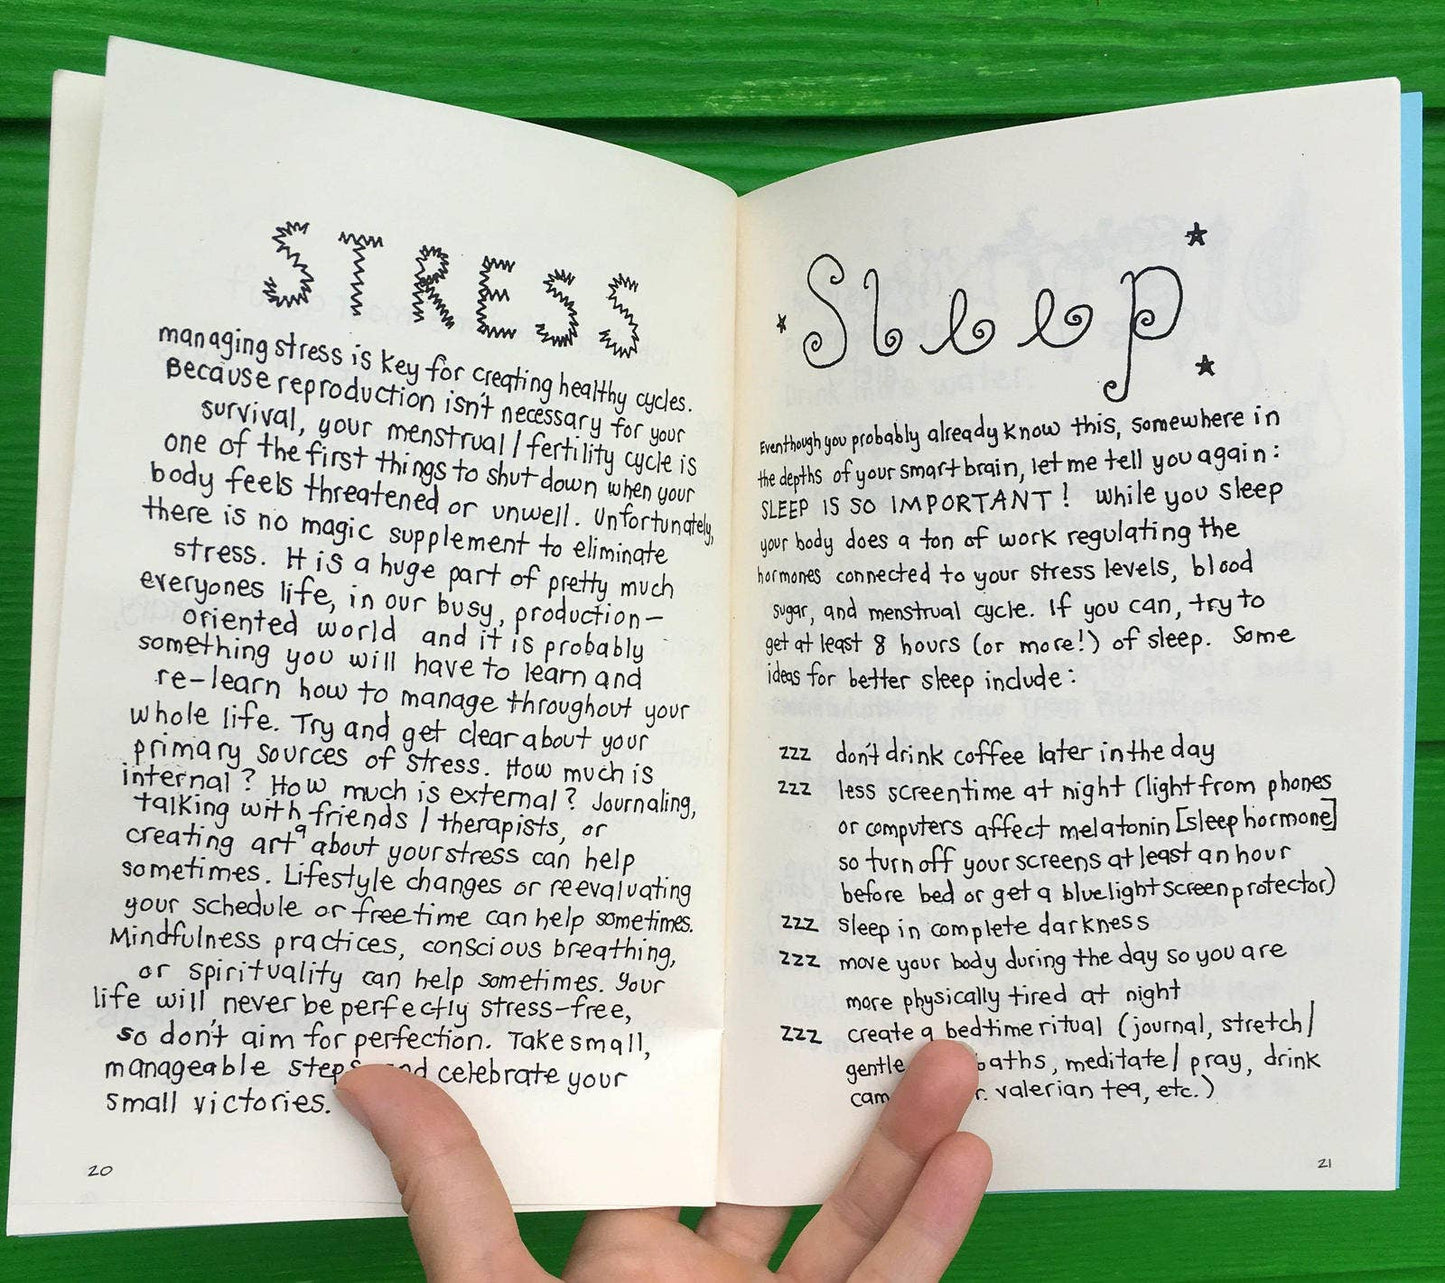 STRESS
managing stress is key for creating healthy cycles.
Because reproduction isn't necessary for your
survival, your menstrual / fertility cycle is
one of the first things to shut down when your
body feels threatened or unwell. Unfortunately,
there is no magic supplement to eliminate
stress. It is a huge part of pretty much
everyones life, in our busy, production-
oriented world and it is probably
something you will have to learn and
re-learn how to manage throughout your
whole life. Try and get clear about your
primary sources of stress. How much is
internal? How much is external? Journaling,
talking with friends / therapists, or
creating art about your stress can help
sometimes. Lifestyle changes or reevaluating
your schedule or freetime can help sometimes.
Mindfulness practices, conscious breathing,
or spirituality can help sometimes. Your
life will never be perfectly stress-free,
so don't aim for perfection. Take small,
manageable steps and celebrate your
small victories.
20
Sleep
Even though you probably already know this, somewhere in
the depths of your smart brain, let me tell you again:
SLEEP IS SO IMPORTANT! While you sleep
your body does a ton of work regulating the
hormones connected to your stress levels, blood
sugar, and menstrual cycle. If you can, try to
get at least 8 hours (or more!) of sleep. Some
ideas for better sleep include:
zzz don't drink coffee later in the day
zzz less screentime at night (light from phones
or computers affect melatonin [sleep hormone]
so turn off your screens at least an hour
before bed or get a bluelight screen protector)
zzz sleep in complete darkness
zzz move your body during the day so you are
more physically tired at night
zzz create a bedtime ritual (journal, stretch/
gentle baths, meditate / pray, drink
valerian tea, etc.)
21